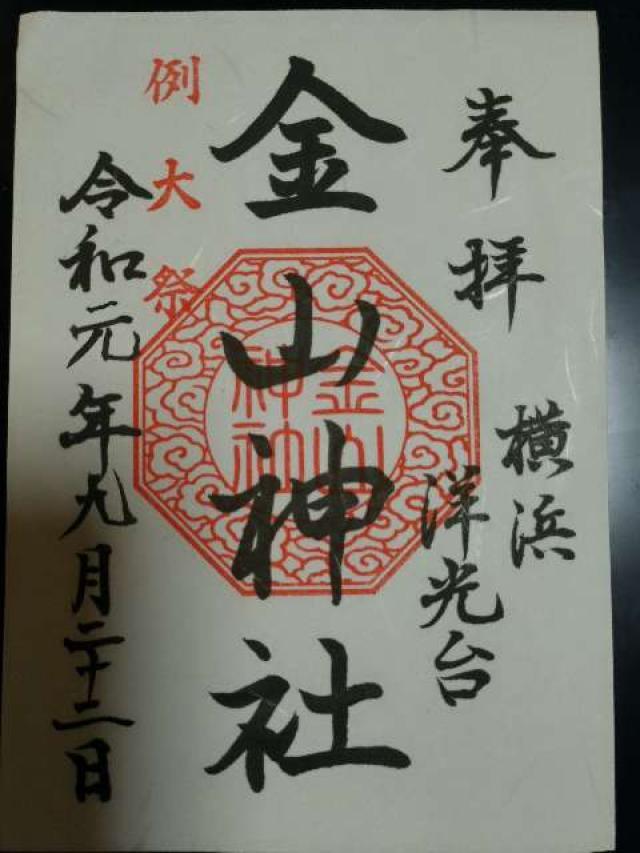 奉拝
横浜
洋光台
金山神社
金山
神社
例大祭
令和元年九月二十二日